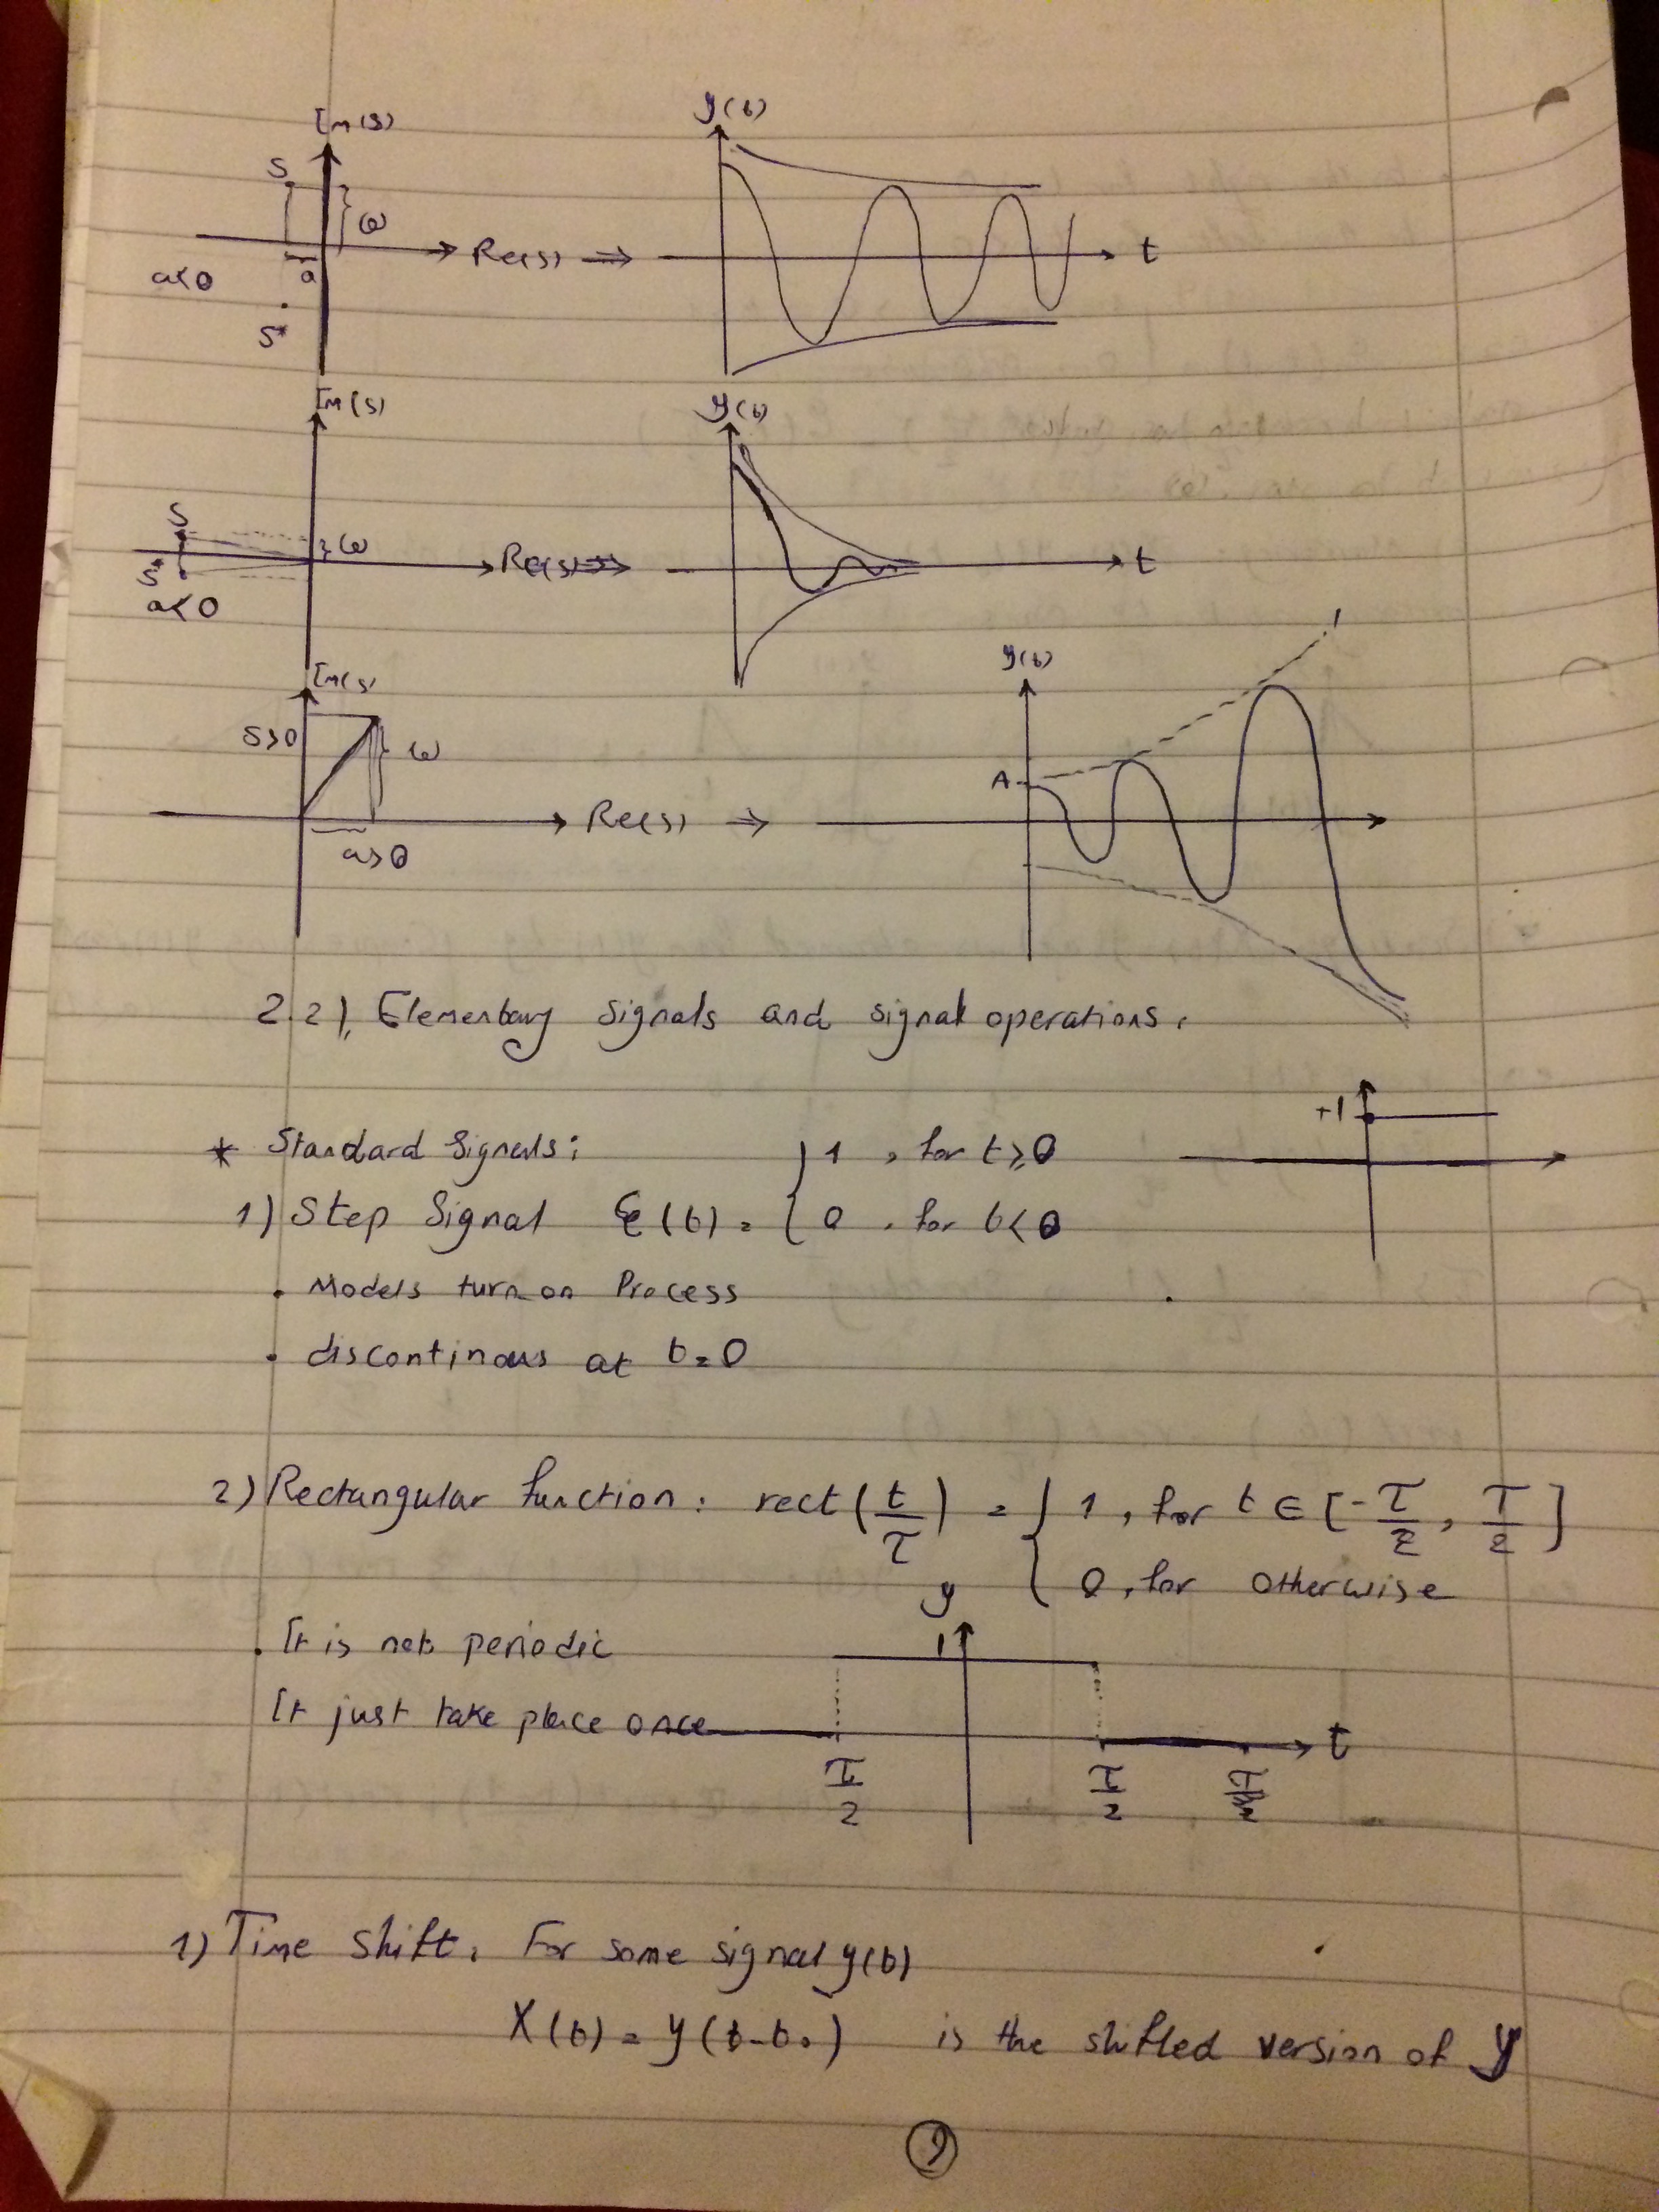 Im(s)
y(t)
s
ω
Re(s) ⇒
t
a<0
a
s*
Im(s)
y(t)
s
ω
Re(s) ⇒
t
s*
a<0
Im(s)
y(t)
s>0
ω
A
Re(s) ⇒
a>0
2.2), Elementary signals and signal operations.
+1
* Standard Signals:
1) Step Signal ε(t) = { 1 , for t ≥ 0
0 , for t < 0
. Models turn on Process
. discontinous at t = 0
2) Rectangular function: rect(t/τ) = { 1 , for t ∈ [-τ/2, τ/2]
0, for otherwise
y
. It is not periodic
1
It just take place once
t
τ/2
τ/2
1) Time shift. For some signal y(t)
X(t) = y(t-t₀) is the shifted version of y
9